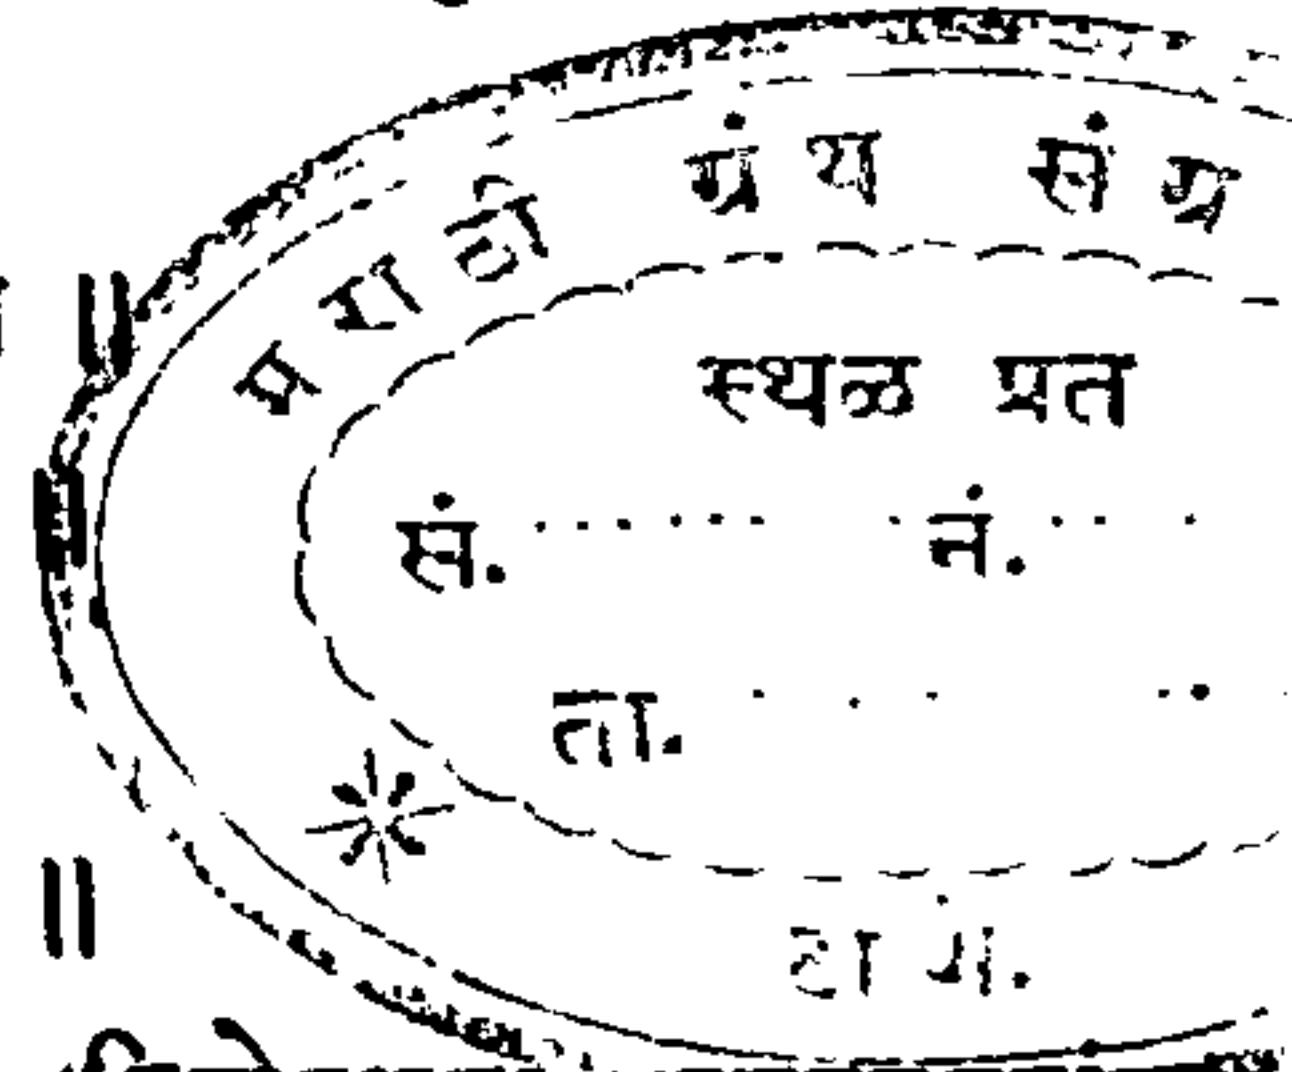 मराठी ग्रंथ संग्र
स्थळ प्रत
सं. नं.
ता.
॥
॥